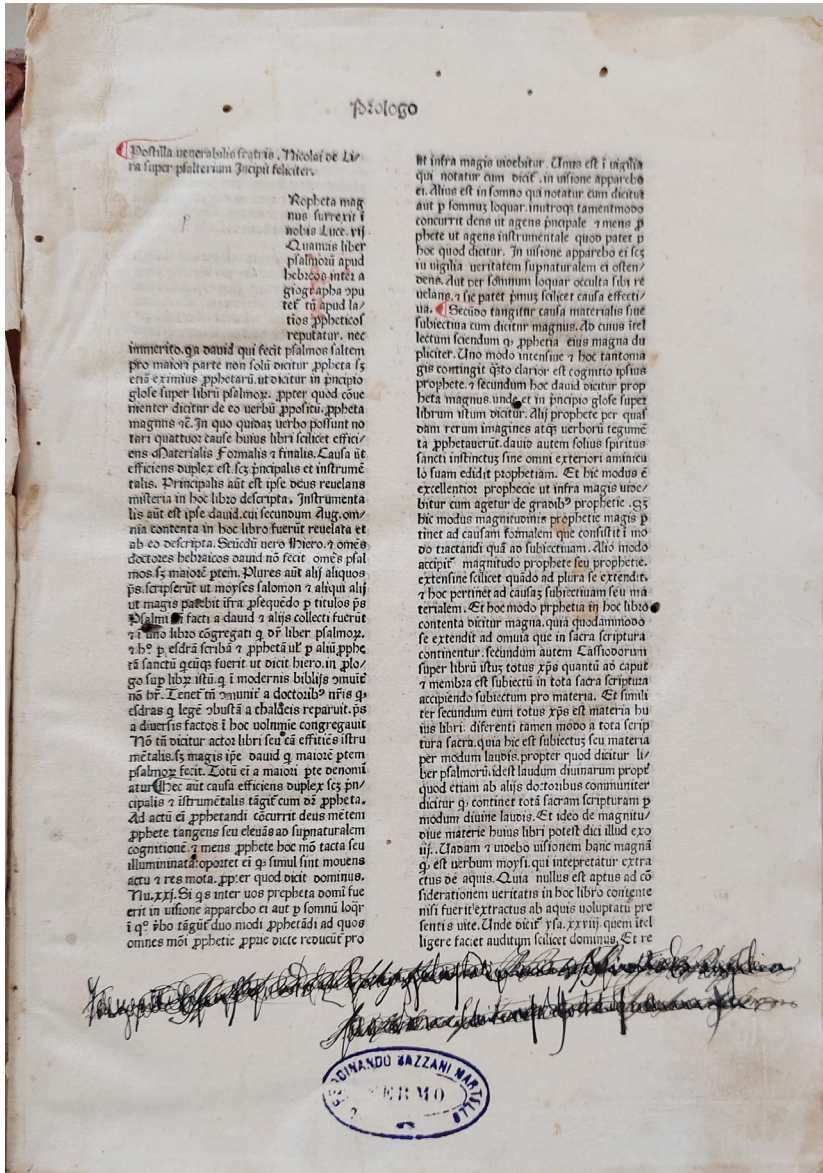 Prologo
Postilla venerabilis fratris. Nicolai de Li/
ra super psalterium Incipit feliciter.
Ropheta mag
nus surrexit ī
nobis Luce. vij
Quamuis liber
psalmorū apud
hebreos inter a
giographa ꝯpu
tet᷑ tn̄ apud la/
tīos ꝓpheticos
reputatur. nec
immerito. qa david qui fecit psalmos saltem
pro maiori parte non solū dicitur ꝓpheta sꝫ
etiā eximius ꝓphetarū. ut dicitur in p̄ncipio
glose super librū psalmoꝝ. ꝓpter quod cōue
nienter dicitur de eo verbū ꝓpositū. ꝓpheta
magnus ⁊c̄. In quo quidaꝫ verbo possunt no
tari quattuor cause huius libri scilicet effici/
ens Materialis Formalis ⁊ finalis. Causa āt
efficiens duplex est. scꝫ p̄ncipalis et instrumē
talis. Principalis aūt est ipse deus reuelans
misteria in hoc libro descripta. Instrumenta
lis aūt est ipse david. cui secundum Aug. om/
nia contenta in hoc libro fuerūt reuelata et
ab eo descripta. Secūdū uero Hiero. ⁊ omēs
doctores hebraicos david nō fecit omēs psal
mos. sꝫ maiorē ptem. Plures aūt alij aliquos
p̄s. scripserūt ut moyses salomon ⁊ aliqui alij
ut magis patebit īfra ꝓsequēdo p titulos p̄s
Psalmi facti a david ⁊ alijs collecti fuerūt
⁊ ī uno libro cōgregati q̨ dr̄ liber psalmoꝝ.
⁊ hᵒ p esdrā scribā ⁊ ꝓphetā ul̄ p aliū ꝓphe
tā sanctū q̄cūqꝫ fuerit ut dicit hiero. in ꝓlo/
go sup libꝝ istū. q̨ ī modernis biblijs ꝯmuit᷑
nō hr̄. Tenet᷑ tn̄ ꝯmunit᷑ a doctoribꝰ nr̄is q̨
esdras q̨ legē ꝯbustā a chaldeis reparuit. p̄s
a diversis factos ī hoc uolnmie congregauit
Nō tn̄ dicitur actor libri seu cā effitiēs īstru
mētalis. sꝫ magis ip̄e david q̨ maiorē ptem
psalmoꝝ fecit. Totū eī a maiori pte denomī
atur Hec aūt causa efficiens duplex sꝫ p̄n/
cipalis ⁊ īstrumētalis tāgit᷑ cum dꝫ ꝓpheta.
Ad actū eī ꝓphetandi cōcurrit deus mētem
ꝓphete tangens seu eleuās ad supnaturalem
cognitionē. ⁊ mens ꝓphete hoc mō tacta seu
illumininata: oportet eī q̨ simul sint mouens
actu ⁊ res mota. ꝓpter quod dicit dominus.
Nu. xxj. Si q̨s inter uos prepheta domī fue
erit in uisione apparebo ei aut p somnū loq̄r
ī qᵒ v̄bo tāgūt᷑ duo modi ꝓphetādi ad quos
omnes mōi ꝓphetie ꝓprie dicte reducūt᷑ pro
ut infra magis uidebitur. Unus est ī uigilia
qui notatur cum dicit᷑. in uisione apparebo
ei. Alius est in somno qui notatur cum dicitur
aut p somnuꝫ loquar. inutroqꝫ tamenmodo
concurrit deus ut agens p̄ncipale ⁊ mens ꝓ
phete ut agens instrumentale quod patet p
hoc quod dicitur. In uisione apparebo ei scꝫ
in vigilia veritatem supnaturalem ei osten/
dens. Aut per somnum loquar occulta sibi re
uelans. ⁊ sic patet p̄muꝫ scilicet causa effecti/
ua. Secūdo tangitur causa materialis siue
subiectiua cum dicitur magnus. Ad cuius ītel
lectum sciendum q̨ ꝓphetia eius magna du
pliciter. Uno modo intensiue ⁊ hoc tantoma
gis contingit q̄sto clarior est cognitio ipsius
prophete. ⁊ secundum hoc david dicitur prop
heta magnus. unde et in p̄ncipio glose super
librum istum dicitur. Alij prophete per quas
dam rerum imagines atqꝫ verborū tegumē
ta ꝓphetauerūt. david autem solius spiritus
sancti instinctuꝫ sine omni exteriori aminicu
lo suam edidit prophetiam. Et hic modus ē
excellentior prophecie ut infra magis uide/
bitur cum agetur de gradibꝰ prophetie. sꝫ
hic modus magnitudinis prophetie magis p
tinet ad causam formalem que consistit ī mo
do tractandi quā ad subiectiuam. Alio modo
accipit᷑ magnitudo prophete seu prophetie.
extensiue scilicet quādo ad plura se extendit.
⁊ hoc pertinet ad causaꝫ subiectiuam seu ma
terialem. Et hoc modo prphetia in hoc libro
contenta dicitur magna. quia quodammodo
se extendit ad omnia que in sacra scriptura
continentur. secundum autem Cassiodorum
super librū istuꝫ totus xp̄s quantū ad caput
⁊ membra est subiectū in tota sacra scriptura
accipiendo subiectum pro materia. Et simili
ter secundum eum totus xp̄s est materia hu
ius libri. diferenti tamen modo a tota scrip
tura sacra. quia hic est subiectuꝫ seu materia
per modum laudis. propter quod dicitur li/
ber psalmorū. idest laudum diuinarum propt᷑
quod etiam ab alijs doctoribus communiter
dicitur q̨ continet totā sacram scripturam p
modum diuine laudis. Et ideo de magnitu/
diue materie huius libri potest dici illud exo
iij. Uadam ⁊ uidebo uisionem hanc magnā
q̨ est uerbum moysi. qui intepretatur extra
ctus de aquis. Quia nullus est aptus ad cō
siderationem ueritatis in hoc libro contente
nisi fuerit extractus ab aquis voluptatū pre
sentis uite. Unde dicit᷑ ysa. xxviij. quem ītel
ligere faciet auditum scilicet dominus. Et re
FERDINANDO VAZZANI MARTELLO
FERMO